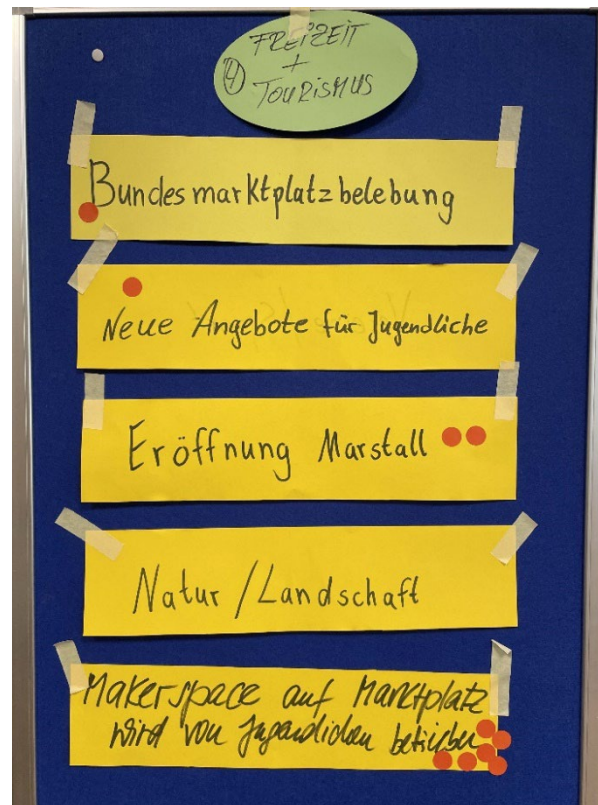 FREiZEiT
+
④ TOURiSMUS
Bundesmarktplatzbelebung
Neue Angebote für Jugendliche
Eröffnung Marstall
Natur / Landschaft
Makerspace auf Marktplatz
wird von Jugendlichen betrieben